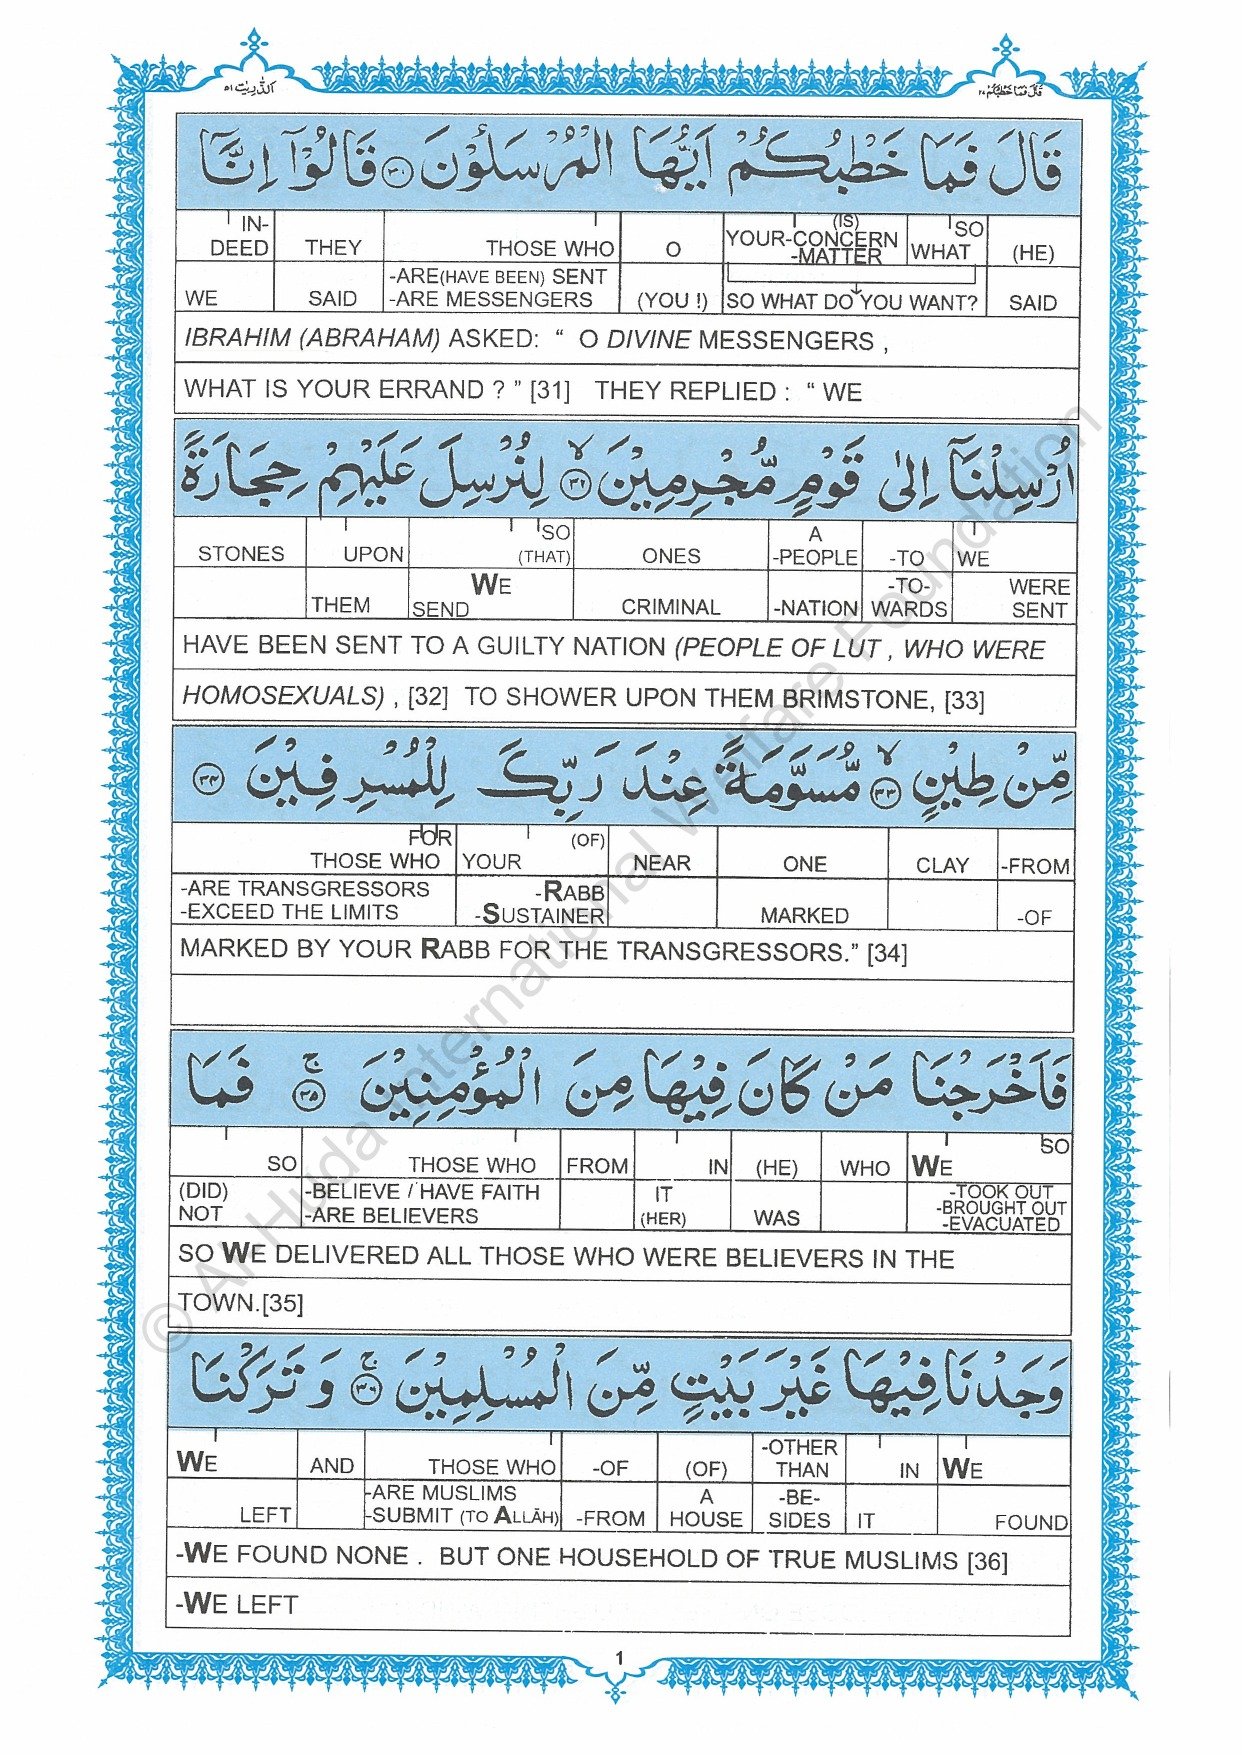 اَلذّٰرِيٰت ٥١
قَالَ فَمَا خَطْبُكُمْ ٢٧
قَالَ فَمَا خَطْبُكُمْ اَيُّهَا الْمُرْسَلُوْنَ ٣١ قَالُوْۤا اِنَّاۤ
IN- (IS) SO
DEED THEY THOSE WHO O YOUR-CONCERN WHAT (HE)
-MATTER
-ARE(HAVE BEEN) SENT
WE SAID -ARE MESSENGERS (YOU !) SO WHAT DO YOU WANT? SAID
IBRAHIM (ABRAHAM) ASKED: “ O DIVINE MESSENGERS ,
WHAT IS YOUR ERRAND ? ” [31] THEY REPLIED : “ WE
اُرْسِلْنَاۤ اِلٰى قَوْمٍ مُّجْرِمِيْنَ ٣٢ۙ لِنُرْسِلَ عَلَيْهِمْ حِجَارَةً
SO A
STONES UPON (THAT) ONES -PEOPLE -TO WE
WE -TO- WERE
THEM SEND CRIMINAL -NATION WARDS SENT
HAVE BEEN SENT TO A GUILTY NATION (PEOPLE OF LUT , WHO WERE
HOMOSEXUALS) , [32] TO SHOWER UPON THEM BRIMSTONE, [33]
مِّنْ طِيْنٍ ٣٣ۙ مُّسَوَّمَةً عِنْدَ رَبِّكَ لِلْمُسْرِفِيْنَ ٣٤
FOR (OF)
THOSE WHO YOUR NEAR ONE CLAY -FROM
-ARE TRANSGRESSORS -RABB
-EXCEED THE LIMITS -SUSTAINER MARKED -OF
MARKED BY YOUR RABB FOR THE TRANSGRESSORS.” [34]
فَاَخْرَجْنَا مَنْ كَانَ فِيْهَا مِنَ الْمُؤْمِنِيْنَ ٣٥ۚ فَمَا
SO
SO THOSE WHO FROM IN (HE) WHO WE
(DID) -BELIEVE / HAVE FAITH IT -TOOK OUT
NOT -ARE BELIEVERS (HER) WAS -BROUGHT OUT
-EVACUATED
SO WE DELIVERED ALL THOSE WHO WERE BELIEVERS IN THE
TOWN.[35]
وَجَدْنَا فِيْهَا غَيْرَ بَيْتٍ مِّنَ الْمُسْلِمِيْنَ ٣٦ۚ وَتَرَكْنَا
-OTHER
WE AND THOSE WHO -OF (OF) THAN IN WE
-ARE MUSLIMS A -BE-
LEFT -SUBMIT (TO ALLĀH) -FROM HOUSE SIDES IT FOUND
-WE FOUND NONE . BUT ONE HOUSEHOLD OF TRUE MUSLIMS [36]
-WE LEFT
1
© Al Huda International Welfare Foundation